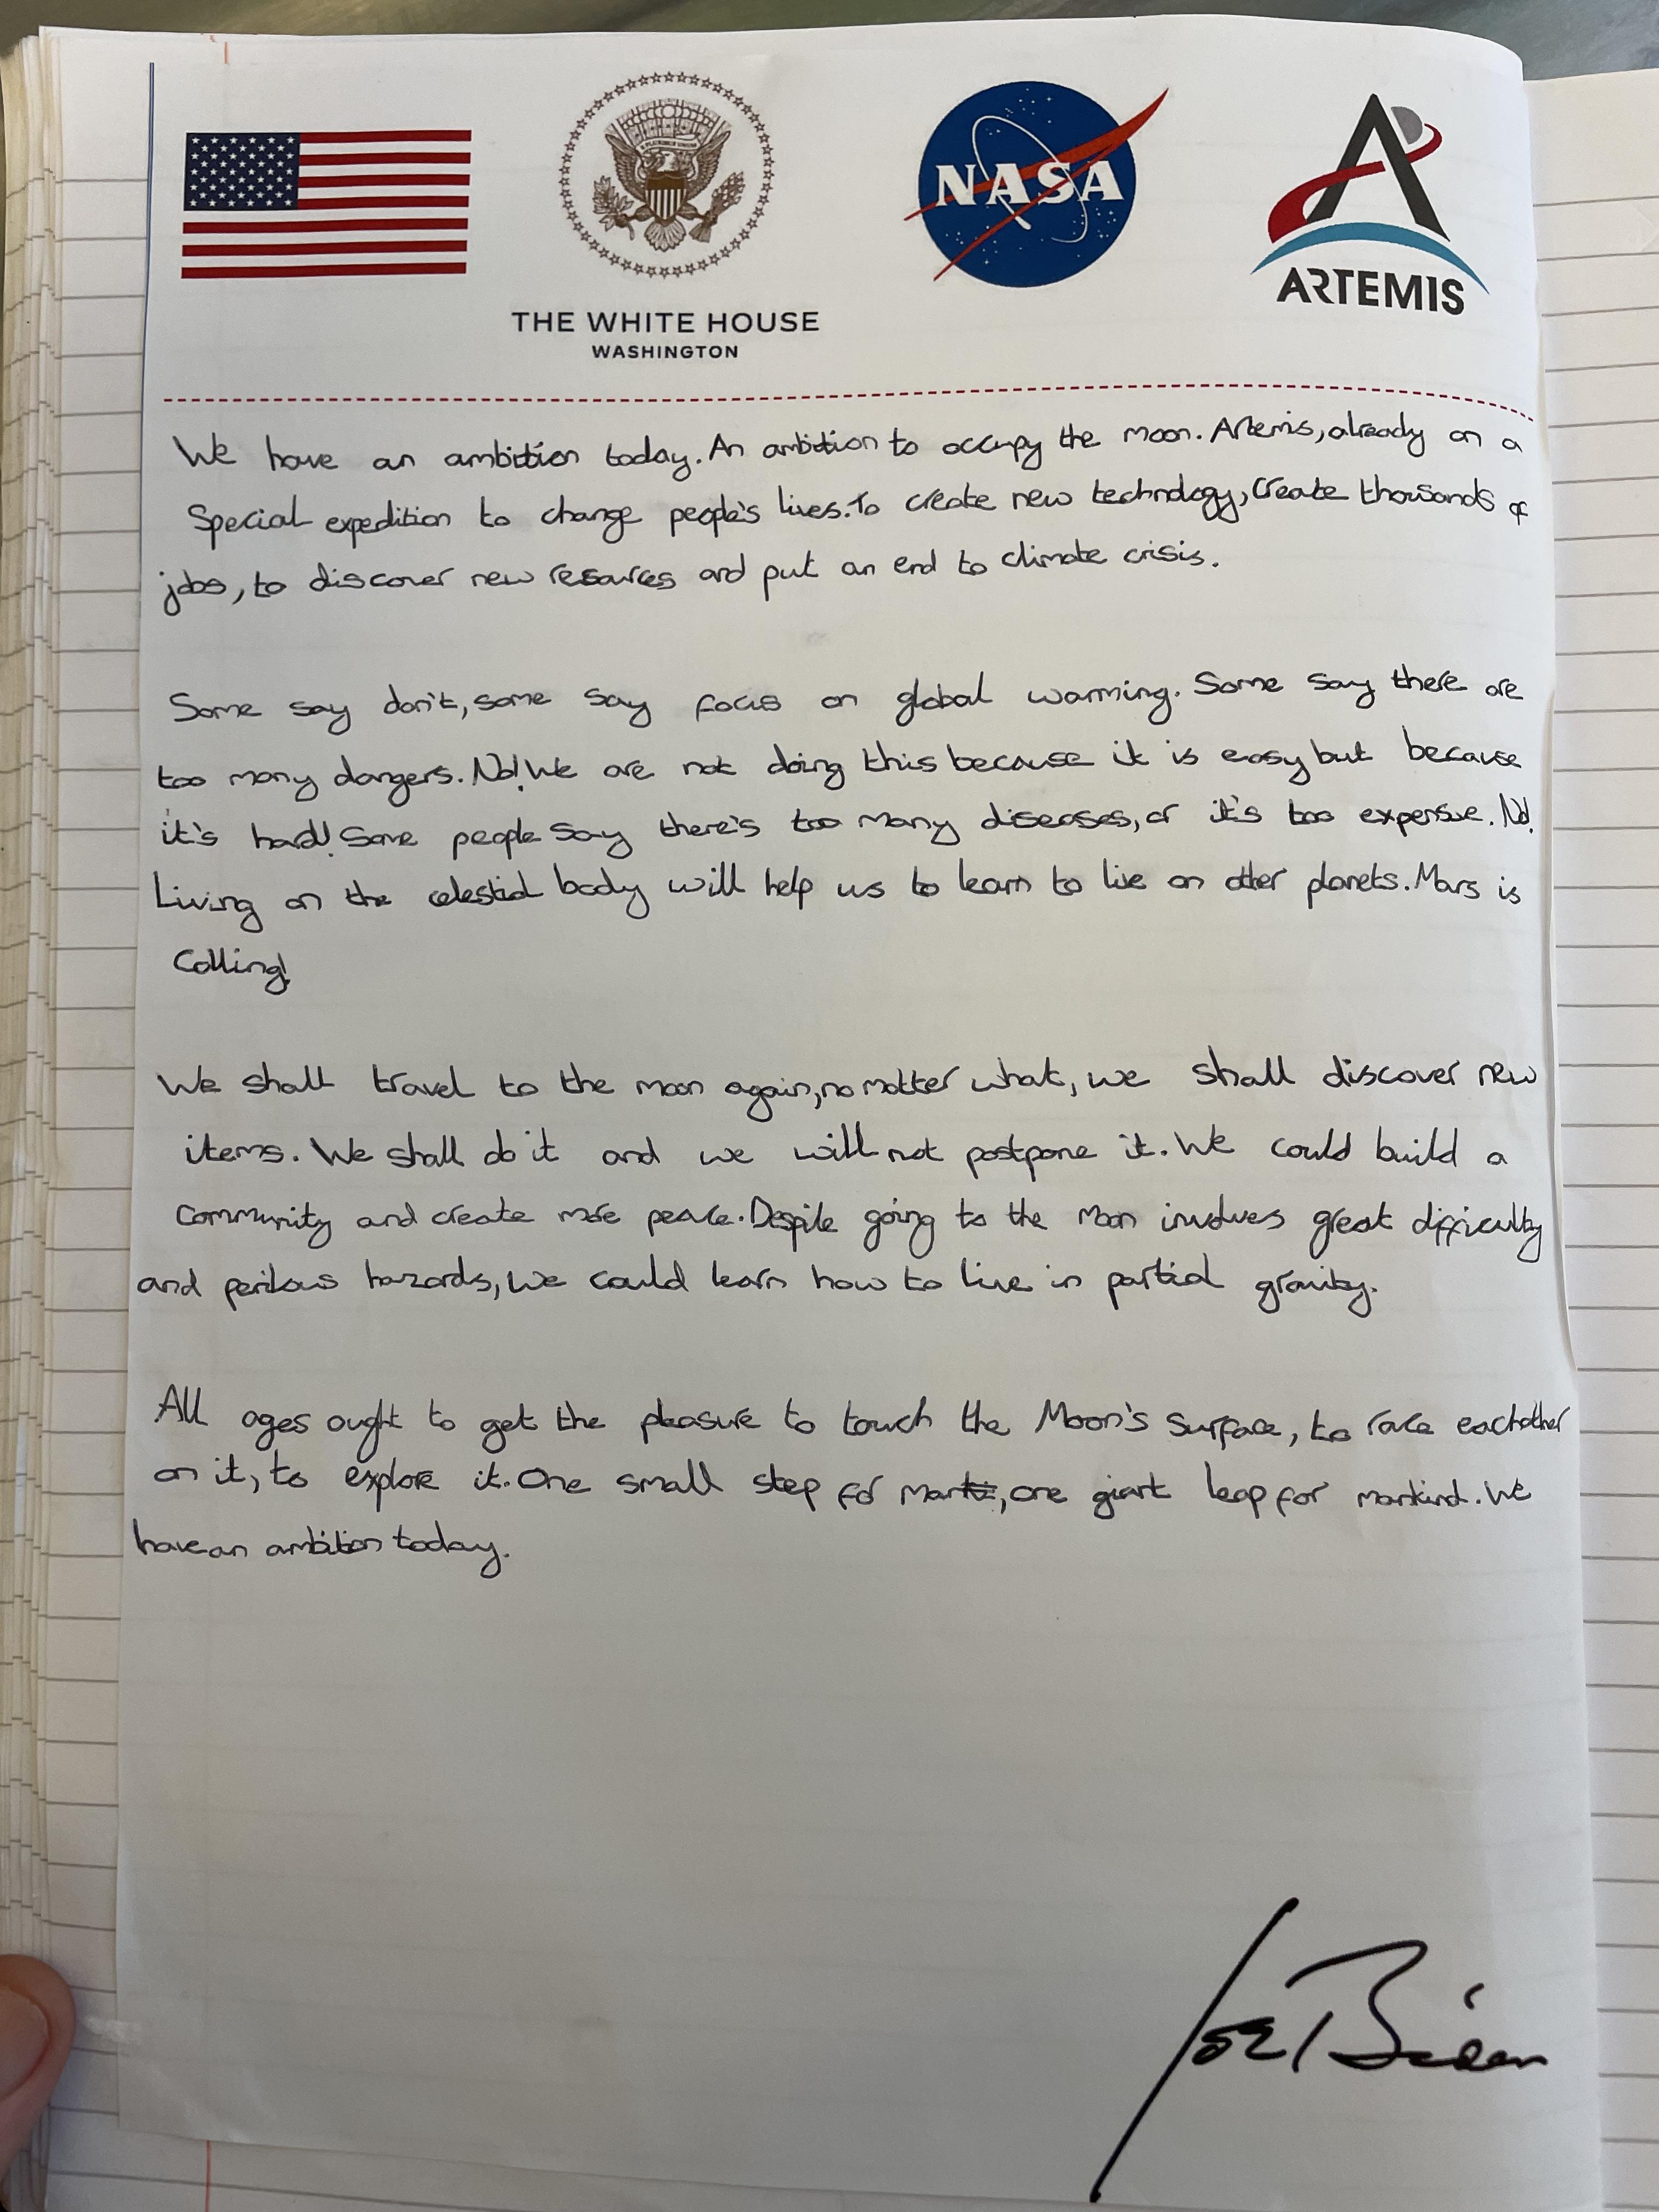 NASA
ARTEMIS
THE WHITE HOUSE
WASHINGTON
We have an ambition today. An ambition to occupy the moon. Artemis, already on a
Special expedition to change people's lives. To create new technology, Create thousands of
jobs, to discover new resources and put an end to climate crisis.
Some say don't, some say focus on global warming. Some say there are
too many dangers. No! We are not doing this because it is easy but because
it's hard! Some people say there's too many diseases, or it's too expensive. No!
Living on the celestial body will help us to learn to live on other planets. Mars is
Calling!
We shall travel to the moon again, no matter what, we shall discover new
items. We shall do it and we will not postpone it. We could build a
Community and create more peace. Despite going to the Moon involves great difficulty
and perilous hazards, we could learn how to live in partial gravity.
All ages ought to get the pleasure to touch the Moon's Surface, to race eachother
on it, to explore it. One small step for man, one giant leap for mankind. We
have an ambition today.
Joe Biden